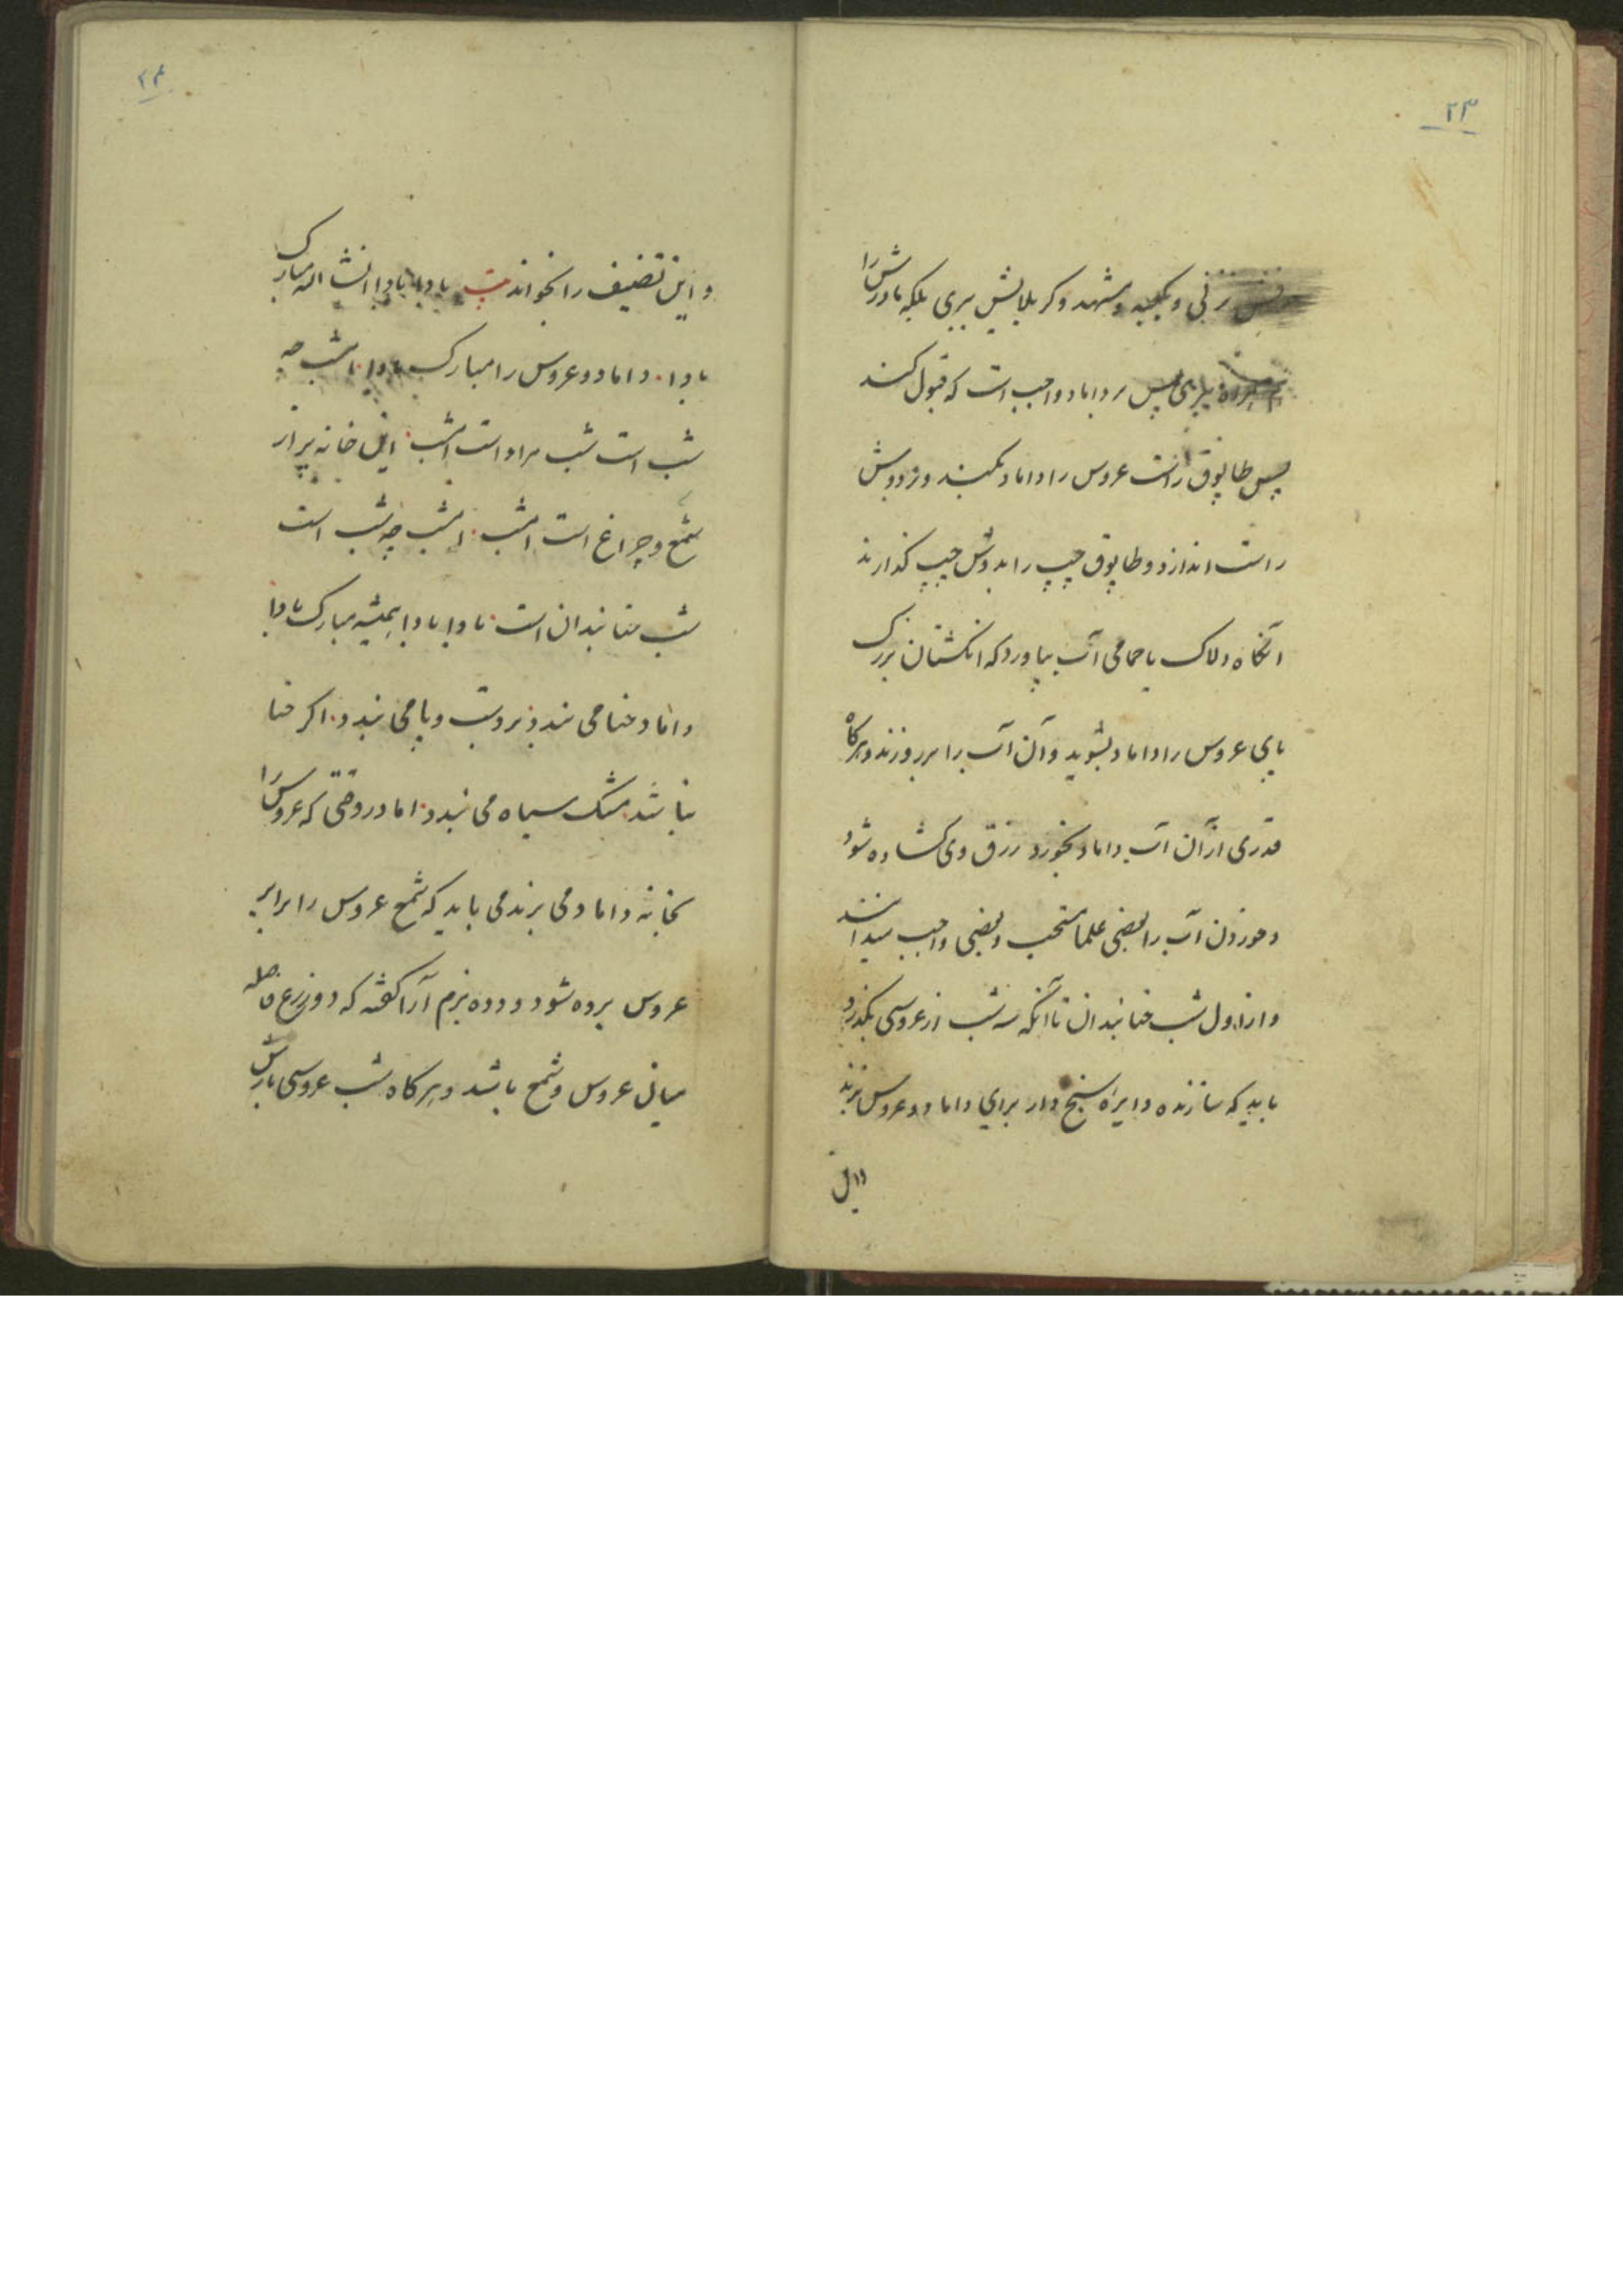 ۲۳
زنی و بکعبه و مشهد و کربلایش ببری بلکه مادرش را
ببری پس بر داماد واجب است که قبول کند
پس طاپوق راست عروس را داماد بکند و بر دوش
راست اندازد و طاپوق چپ را بدوش چپ گذارند
آنگاه دلاک یا حمامی آب بیاورد که انگشتان بزرگ
پای عروس را داماد بشوید و آن آب را بر روزند و هرگاه
قدری از آن آب داماد بخورد رزق وی گشاده شود
و خوردن آب را بعضی علما مستحب و بعضی واجب میدانند
و از اول شب حنابندان تا آنکه سه شب از عروسی بگذرد
باید که سازنده دایره سنج دار برای داماد و عروس بزند
و این
۲۴
و این تصنیف را بخواند بیت بادا بادا بادا انشا الله مبارک
بادا داماد و عروس را مبارک بادا امشب چه
شب است شب مراد است امشب این خانه پر از
شمع و چراغ است امشب امشب چه شب است
شب حنابندان است بادا بادا همیشه مبارک بادا
داماد حنا می بندد بر دست و پا می بندد اگر حنا
نباشد مشک سیاه می بندد اما در وقتی که عروس را
بخانه داماد می برند می باید که شمع عروس را برابر
عروس برده شود و دده بزم آرا گفته که دو زرع فاصله
میانی عروس و شمع باشد و هرگاه شب عروسی بارش